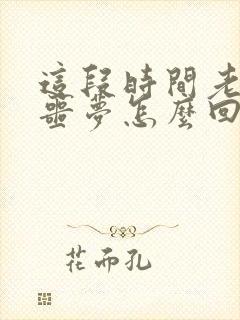 這段時間老
噩夢怎麼回
花而孔